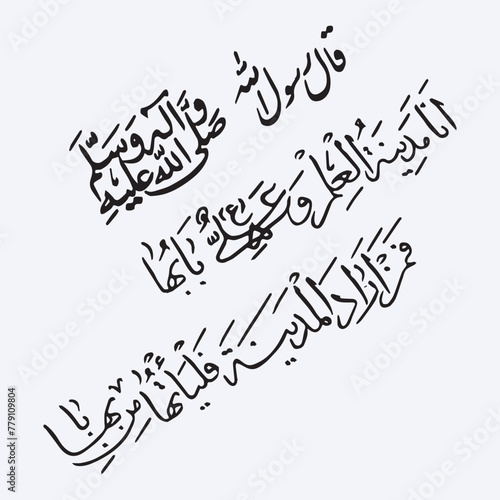 قال رسول الله صلى الله عليه وآله وسلم
انا مدينة العلم وعلي ع بابها
فمن اراد المدينة فليأتها من بابها
Adobe Stock | #779109804